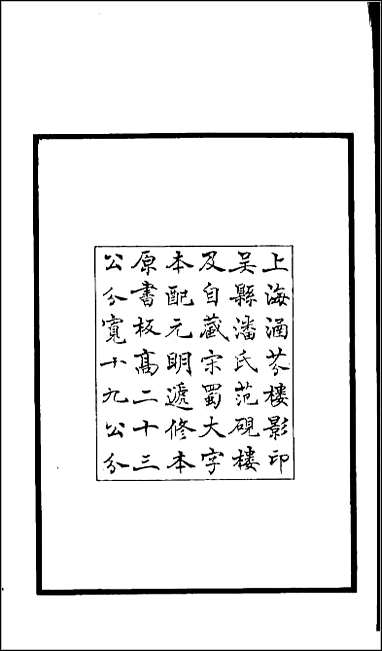 上海涵芬樓影印
吳縣潘氏范硯樓
及自藏宋蜀大字
本配元明遞修本
原書板高二十三
公分寬十九公分